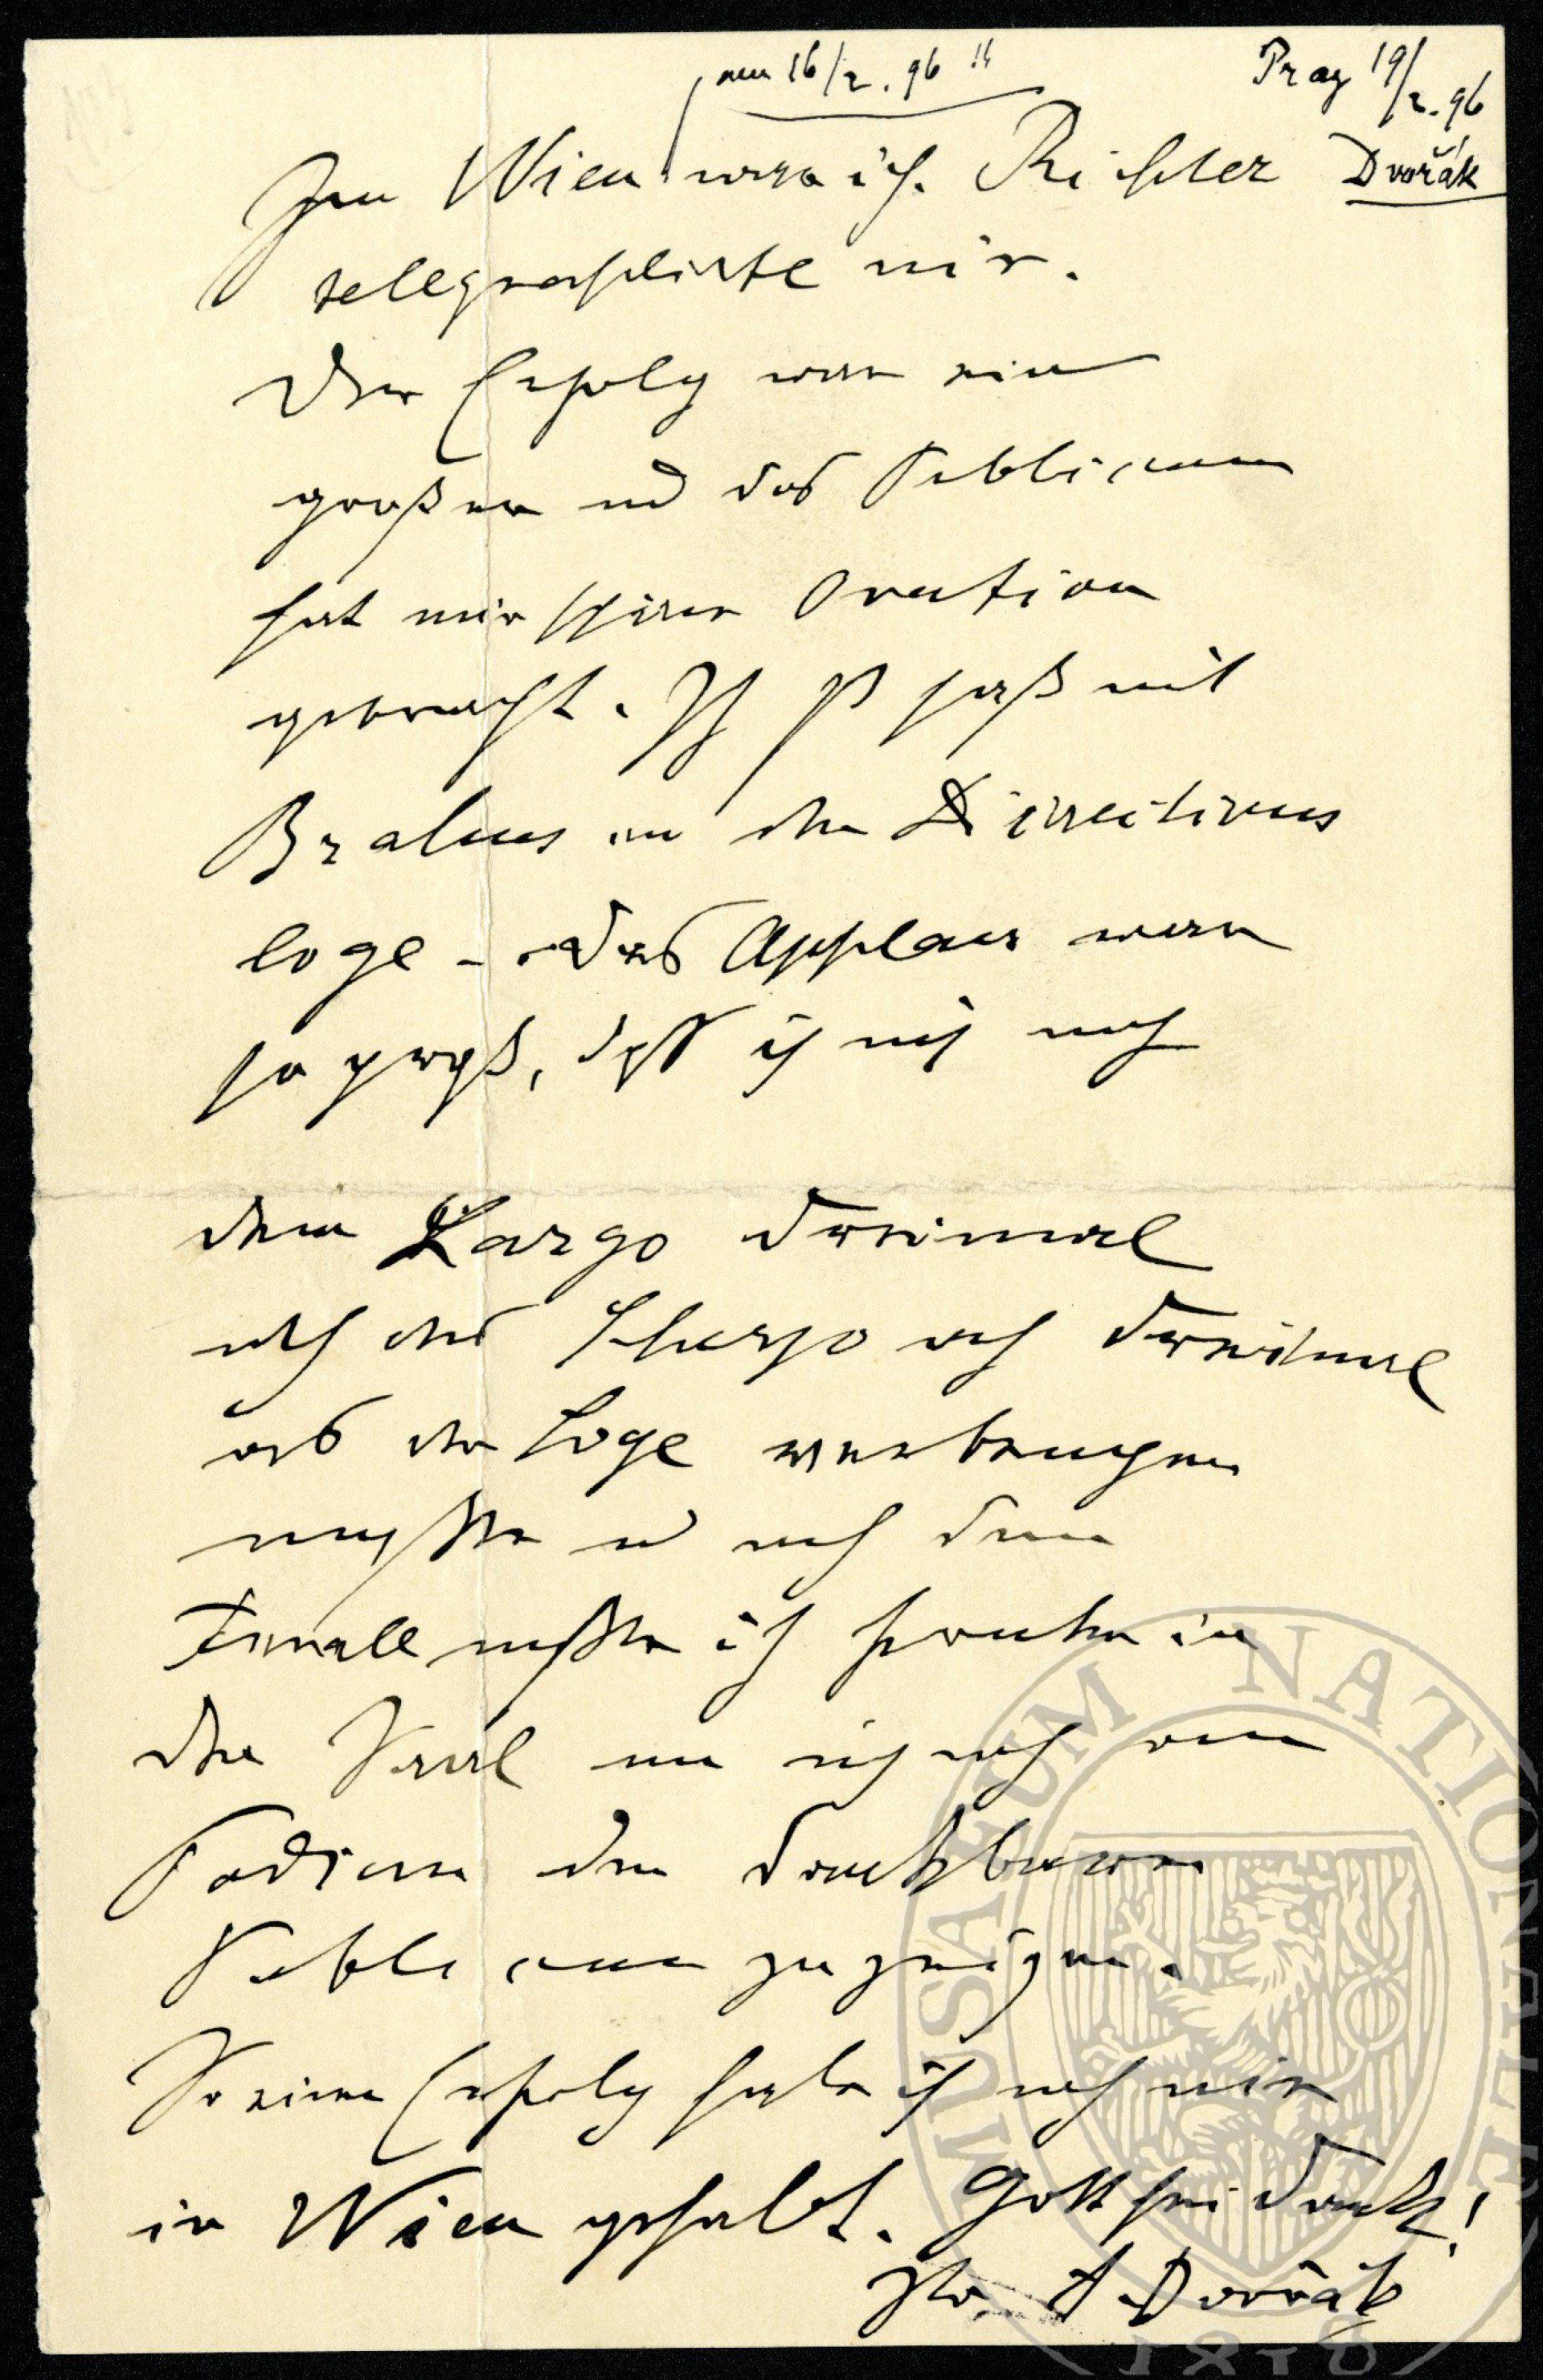 am 16/2. 96 !!
Prag 19/2. 96
In Wien war ich. Richter
Dvořák
telegraphirte mir.
Der Erfolg war ein
großer und das Publicum
hat mir Ovation
gebracht. Ich saß mit
Brahms in der Directions
loge – das Applaus war
so groß, daß ich mich nach
dem Largo dreimal
nach das Scherzo auch dreimal
aus der Loge verbeugen
mußte u nach dem
Finale mußte ich herunter in
den Saal um mich noch vom
Podium dem dankbaren
Publicum zu zeigen.
So einen Erfolg habe ich noch nie
in Wien gehabt. Gott sei Dank!
Ihr A Dvořák
MUSAEUM NATIONALE
1818